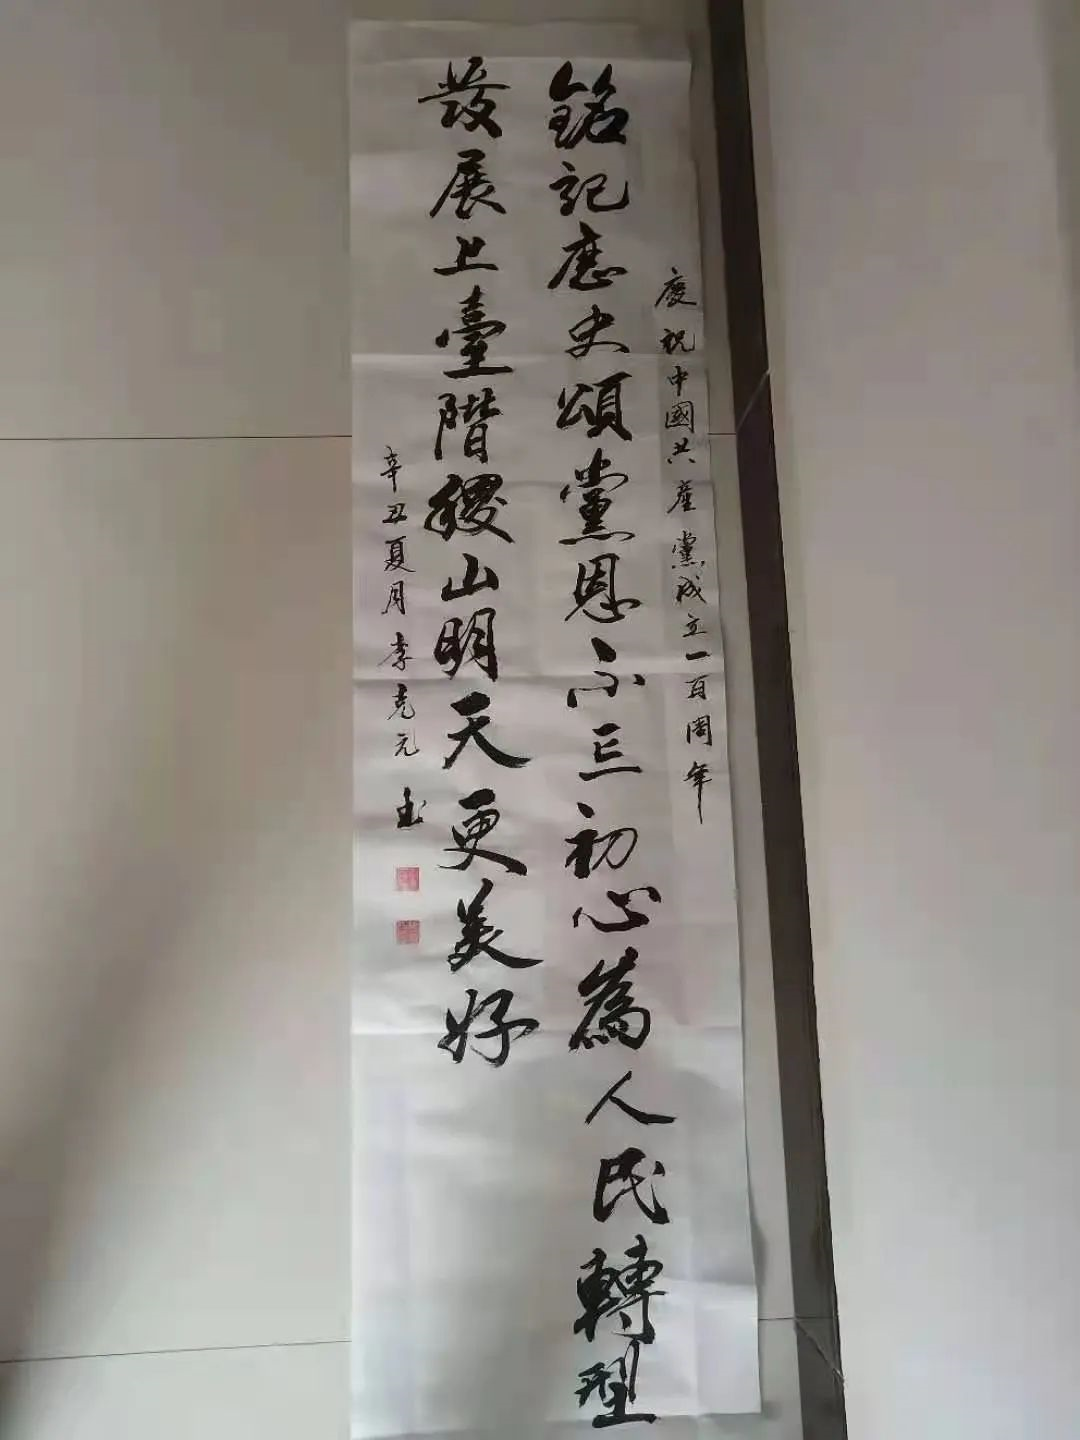 慶祝中國共產黨成立一百周年
銘記歷史頌黨恩不忘初心為人民轉型
發展上臺階稷山明天更美好
辛丑夏月李克元书